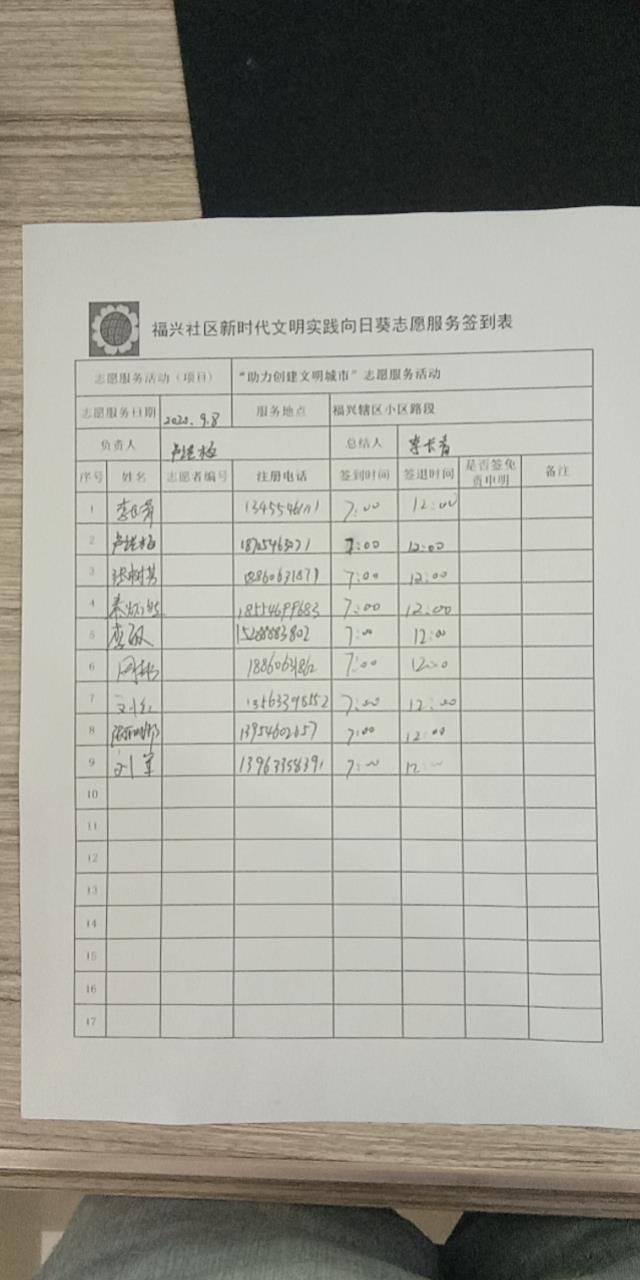 福兴社区新时代文明实践向日葵志愿服务签到表
志愿服务活动（项目） “助力创建文明城市”志愿服务活动
志愿服务日期 2020.9.8 服务地点 福兴辖区小区路段
负责人 总结人 李长青
序号 姓名 志愿者编号 注册电话 签到时间 签退时间 是否签免责申明 备注
1 7:00 12:00
2 7:00 12:00
3 7:00 12:00
4 18554699683 7:00 12:00
5 李敏 15288883802 7:00 12:00
6 7:00 12:00
7 刘红 13563398552 7:00 12:00
8 13954602657 7:00 12:00
9 刘军 13963358391 7:00 12:00
10
11
12
13
14
15
16
17